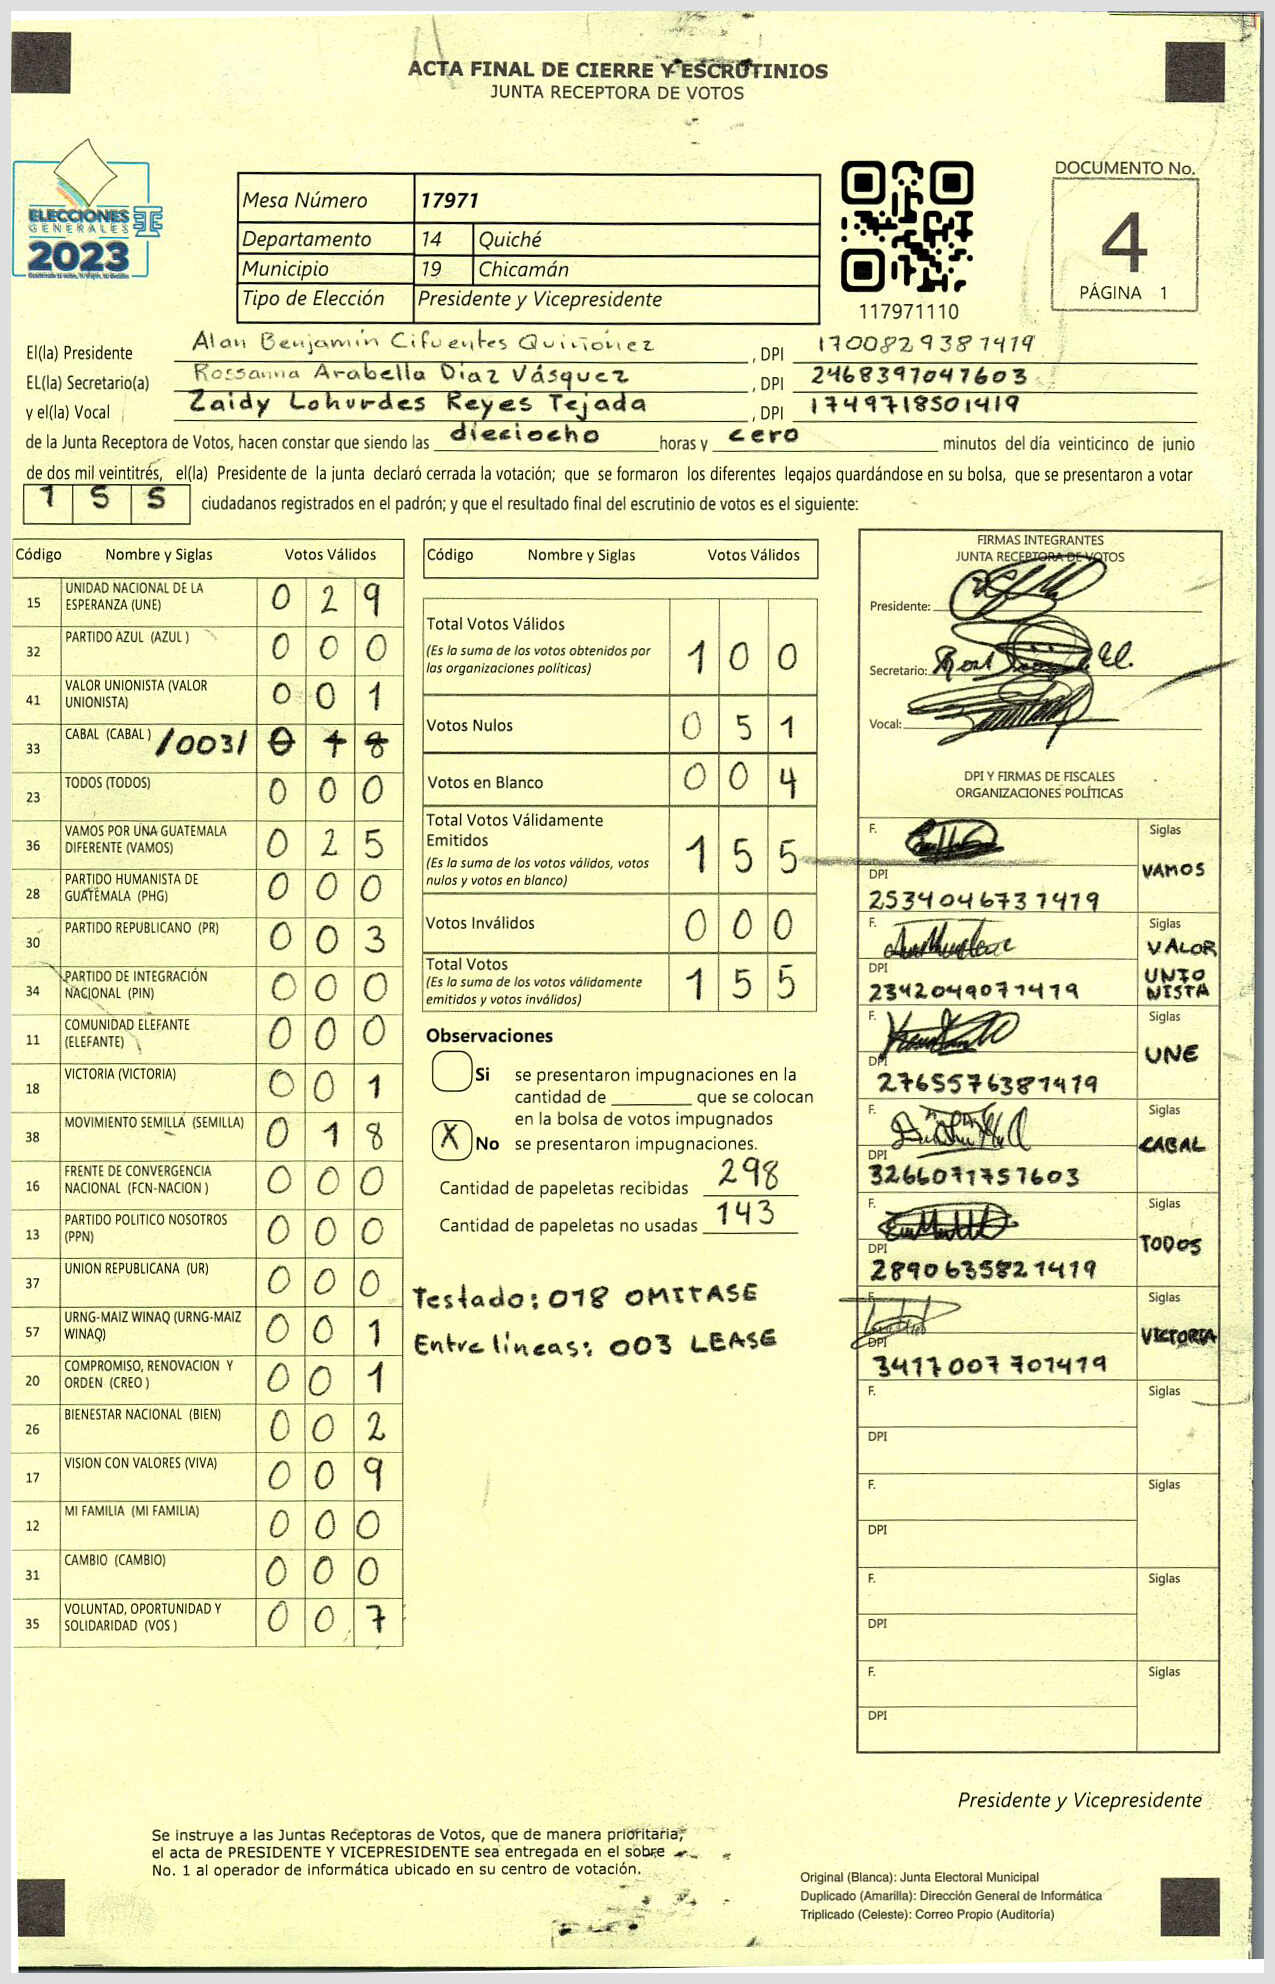 ACTA FINAL DE CIERRE Y ESCRUTINIOS
JUNTA RECEPTORA DE VOTOS
ELECCIONES
GENERALES
2023
Mesa Número 17971
Departamento 14 Quiché
Municipio 19 Chicamán
Tipo de Elección Presidente y Vicepresidente
117971110
DOCUMENTO No.
4
PÁGINA 1
El(la) Presidente Alan Benjamín Cifuentes Quiñónez , DPI 1700829381419
EL(la) Secretario(a) Rossanna Arabella Díaz Vásquez , DPI 2468397047603
y el(la) Vocal Zaidy Lohurdes Reyes Tejada , DPI 1749718501419
de la Junta Receptora de Votos, hacen constar que siendo las dieciocho horas y cero minutos del día veinticinco de junio
de dos mil veintitrés, el(la) Presidente de la junta declaró cerrada la votación; que se formaron los diferentes legajos quardándose en su bolsa, que se presentaron a votar
1 5 5 ciudadanos registrados en el padrón; y que el resultado final del escrutinio de votos es el siguiente:
Código Nombre y Siglas Votos Válidos
15 UNIDAD NACIONAL DE LA ESPERANZA (UNE) 0 2 9
32 PARTIDO AZUL (AZUL ) 0 0 0
41 VALOR UNIONISTA (VALOR UNIONISTA) 0 0 1
33 CABAL (CABAL ) /003/ 0 1 8
23 TODOS (TODOS) 0 0 0
36 VAMOS POR UNA GUATEMALA DIFERENTE (VAMOS) 0 2 5
28 PARTIDO HUMANISTA DE GUATEMALA (PHG) 0 0 0
30 PARTIDO REPUBLICANO (PR) 0 0 3
34 PARTIDO DE INTEGRACIÓN NACIONAL (PIN) 0 0 0
11 COMUNIDAD ELEFANTE (ELEFANTE) 0 0 0
18 VICTORIA (VICTORIA) 0 0 1
38 MOVIMIENTO SEMILLA (SEMILLA) 0 1 8
16 FRENTE DE CONVERGENCIA NACIONAL (FCN-NACION ) 0 0 0
13 PARTIDO POLITICO NOSOTROS (PPN) 0 0 0
37 UNION REPUBLICANA (UR) 0 0 0
57 URNG-MAIZ WINAQ (URNG-MAIZ WINAQ) 0 0 1
20 COMPROMISO, RENOVACION Y ORDEN (CREO ) 0 0 1
26 BIENESTAR NACIONAL (BIEN) 0 0 2
17 VISION CON VALORES (VIVA) 0 0 9
12 MI FAMILIA (MI FAMILIA) 0 0 0
31 CAMBIO (CAMBIO) 0 0 0
35 VOLUNTAD, OPORTUNIDAD Y SOLIDARIDAD (VOS ) 0 0 7
Código Nombre y Siglas Votos Válidos
Total Votos Válidos 1 0 0
(Es la suma de los votos obtenidos por
las organizaciones políticas)
Votos Nulos 0 5 1
Votos en Blanco 0 0 4
Total Votos Válidamente
Emitidos 1 5 5
(Es la suma de los votos válidos, votos
nulos y votos en blanco)
Votos Inválidos 0 0 0
Total Votos 1 5 5
(Es la suma de los votos válidamente
emitidos y votos inválidos)
Observaciones
Si se presentaron impugnaciones en la
cantidad de ________ que se colocan
en la bolsa de votos impugnados
X No se presentaron impugnaciones.
Cantidad de papeletas recibidas 298
Cantidad de papeletas no usadas 143
Testado: 018 OMITASE
Entre líneas: 003 LEASE
FIRMAS INTEGRANTES
JUNTA RECEPTORA DE VOTOS
Presidente:
Secretario:
Vocal:
DPI Y FIRMAS DE FISCALES
ORGANIZACIONES POLÍTICAS
F. Siglas
VAMOS
DPI
2534046731419
F. Siglas
VALOR
UNIO
NISTA
DPI
2342049071419
F. Siglas
UNE
DPI
2765576381419
F. Siglas
CABAL
DPI
3266071757603
F. Siglas
TODOS
DPI
2890635821419
F. Siglas
VICTORIA
DPI
3417007701419
F. Siglas
DPI
F. Siglas
DPI
F. Siglas
DPI
F. Siglas
DPI
Presidente y Vicepresidente
Se instruye a las Juntas Receptoras de Votos, que de manera prioritaria,
el acta de PRESIDENTE Y VICEPRESIDENTE sea entregada en el sobre
No. 1 al operador de informática ubicado en su centro de votación.
Original (Blanca): Junta Electoral Municipal
Duplicado (Amarilla): Dirección General de Informática
Triplicado (Celeste): Correo Propio (Auditoría)